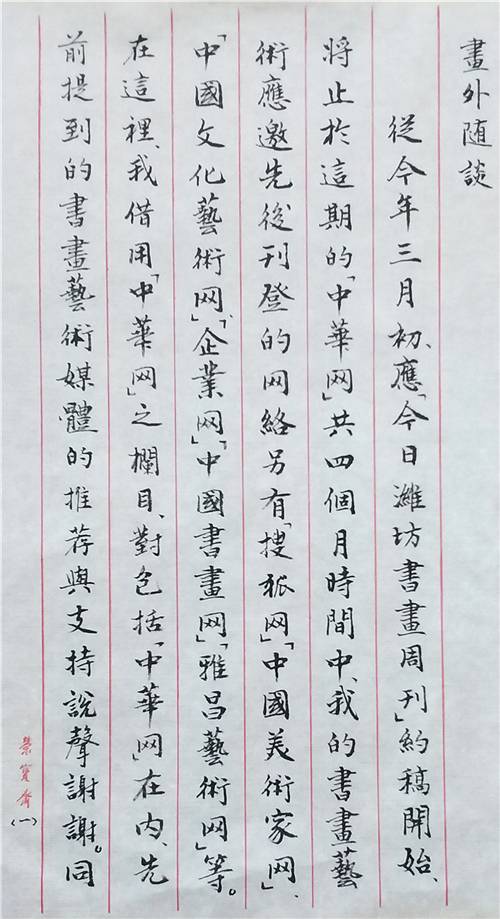 畫外随談
從今年三月初、應「今日濰坊書畫周刊」約稿開始、
將止於這期的「中華网」共四個月時間中、我的書畫藝
術應邀先後刊登的网絡另有「搜狐网」「中國美術家网」、
「中國文化藝術网」、「企業网」「中國書畫网」「雅昌藝術网」等。
在這裡、我借用「中華网」之欄目、對包括「中華网」在内、先
前提到的書畫藝術媒體的推荐與支持說聲謝謝。同
榮寶齋
(一)